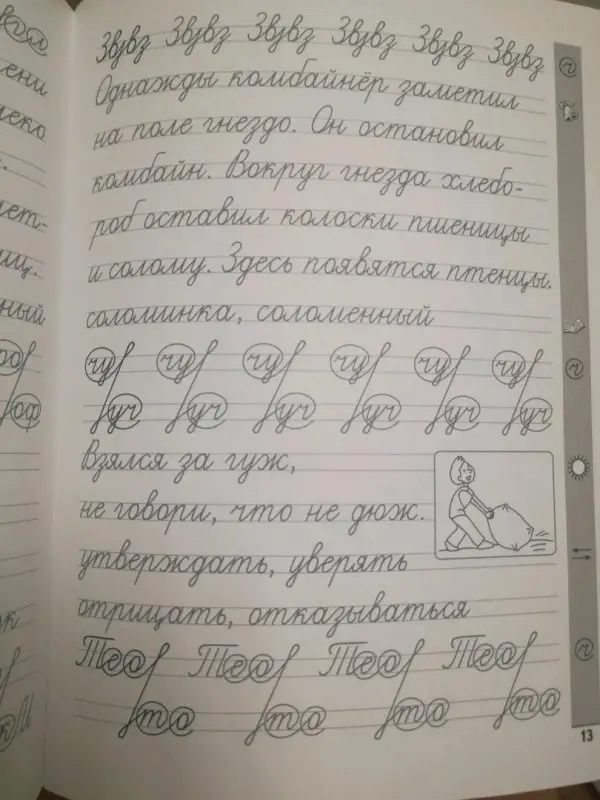 Звувз Звувз Звувз Звувз Звувз Звувз
Однажды комбайнёр заметил
на поле гнездо. Он остановил
комбайн. Вокруг гнезда хлебо-
роб оставил колоски пшеницы
и солому. Здесь появятся птенцы.
соломинка, соломенный
чу чу чу чу чу чу
уч уч уч уч уч уч
Взялся за гуж,
не говори, что не дюж.
утверждать, уверять
отрицать, отказываться
Тео Тео Тео Тео
то то то то
13